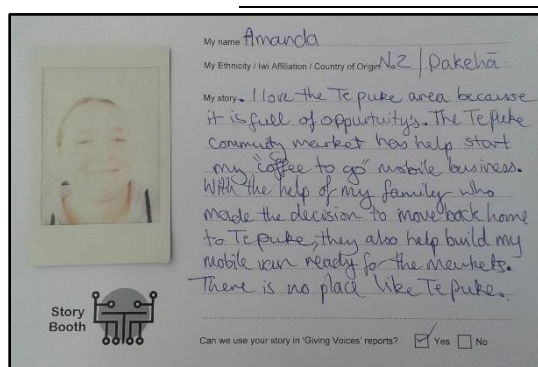 My name Amanda
My Ethnicity / Iwi Affiliation / Country of Origin N.Z / Pakehā
My story. I love the Te puke area because
it is full of oppurtuity's. The Te puke
commuity market has help start
my "coffee to go" mobile business.
With the help of my family who
made the decision to move back home
to Te puke, they also help build my
mobile van ready for the markets.
There is no place like Te puke.
Story
Booth
Can we use your story in 'Giving Voices' reports? Yes No